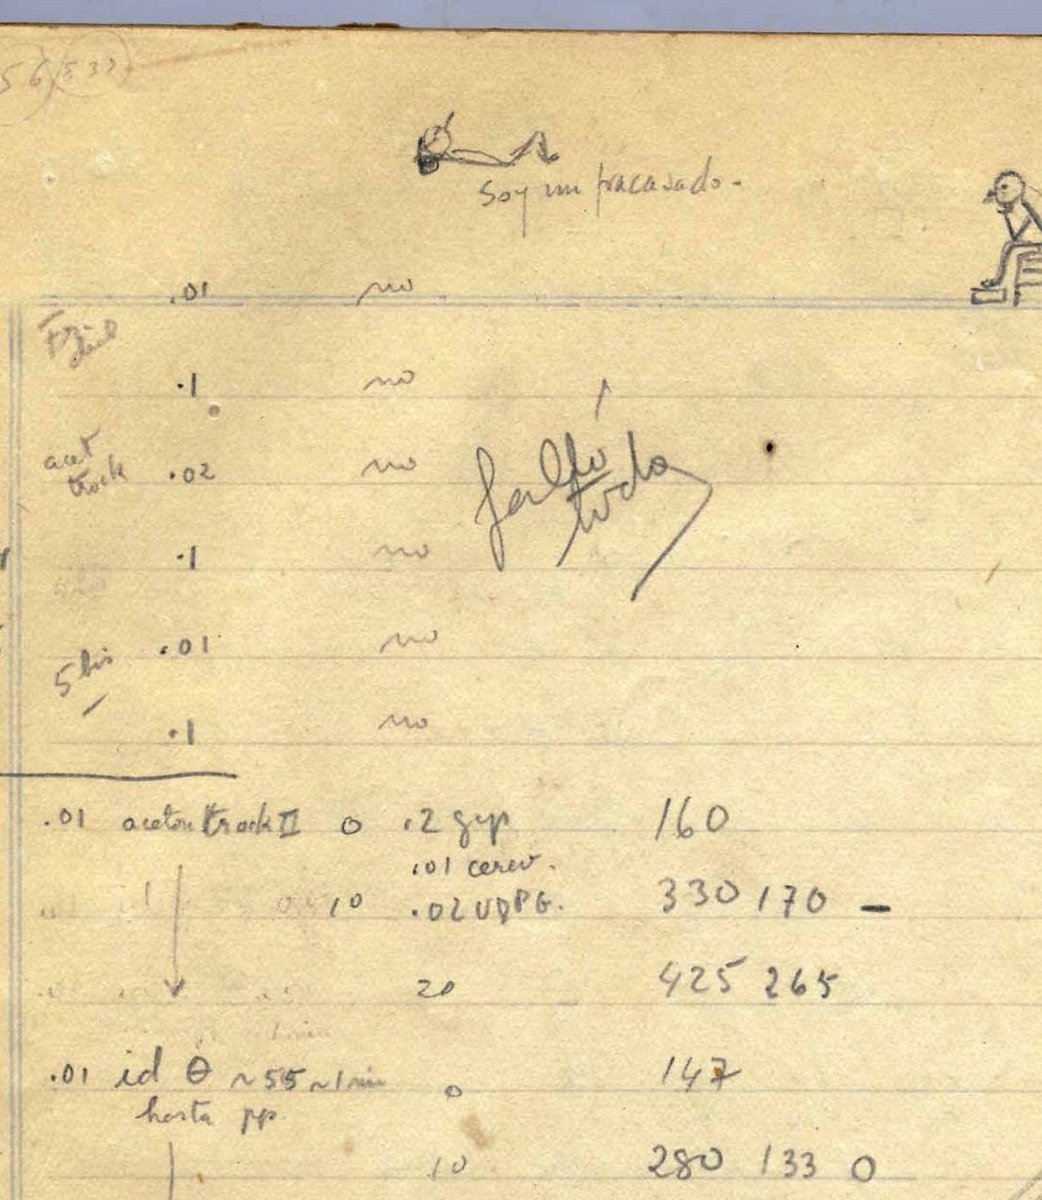 56 537
Soy un fracasado.
.01 no
.1 no
acet
trock .02 no
.1 no
falló
todo
.01 no
5 bis
.1 no
.01 aceton trock II 0 .2 gyp 160
.01 cerev.
10 .02 UDPG. 330 170 –
20 425 265
.01 id θ ~55 ~1 min 0 147
hasta pp
10 280 133 0